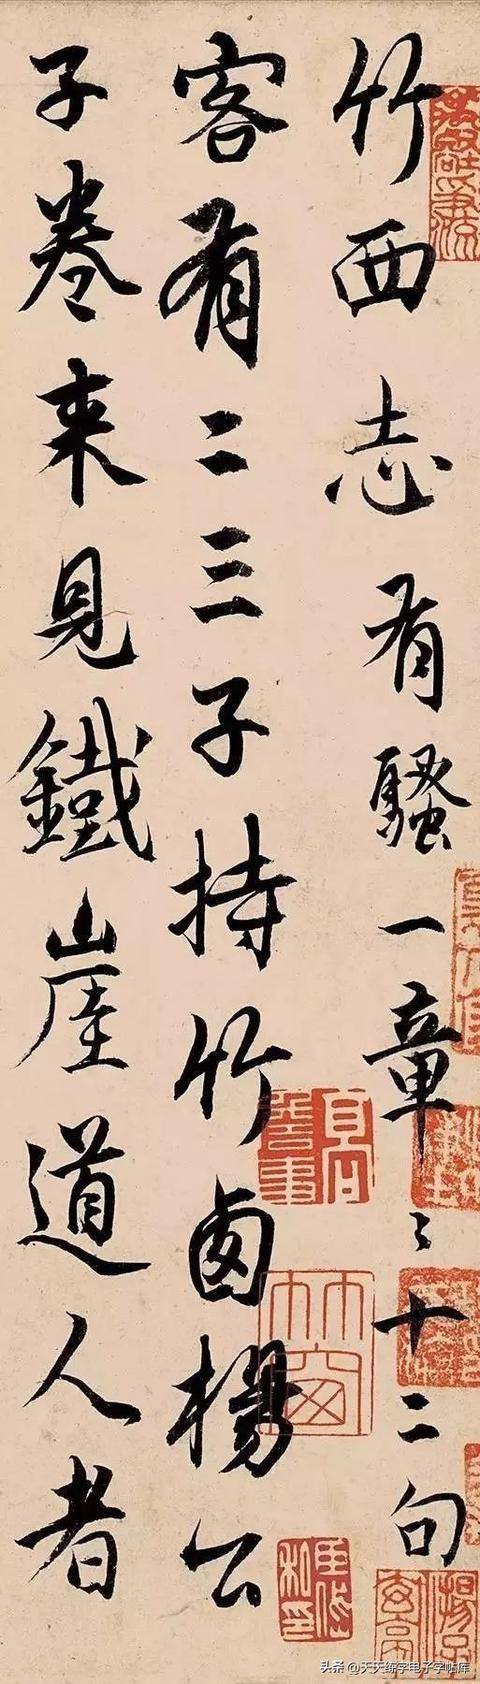 竹西志有騷一章〻十二句
客有二三子持竹卤楊公
子卷来見鐵崖道人者
竹窗
頭条 @天天练字电子字帖库